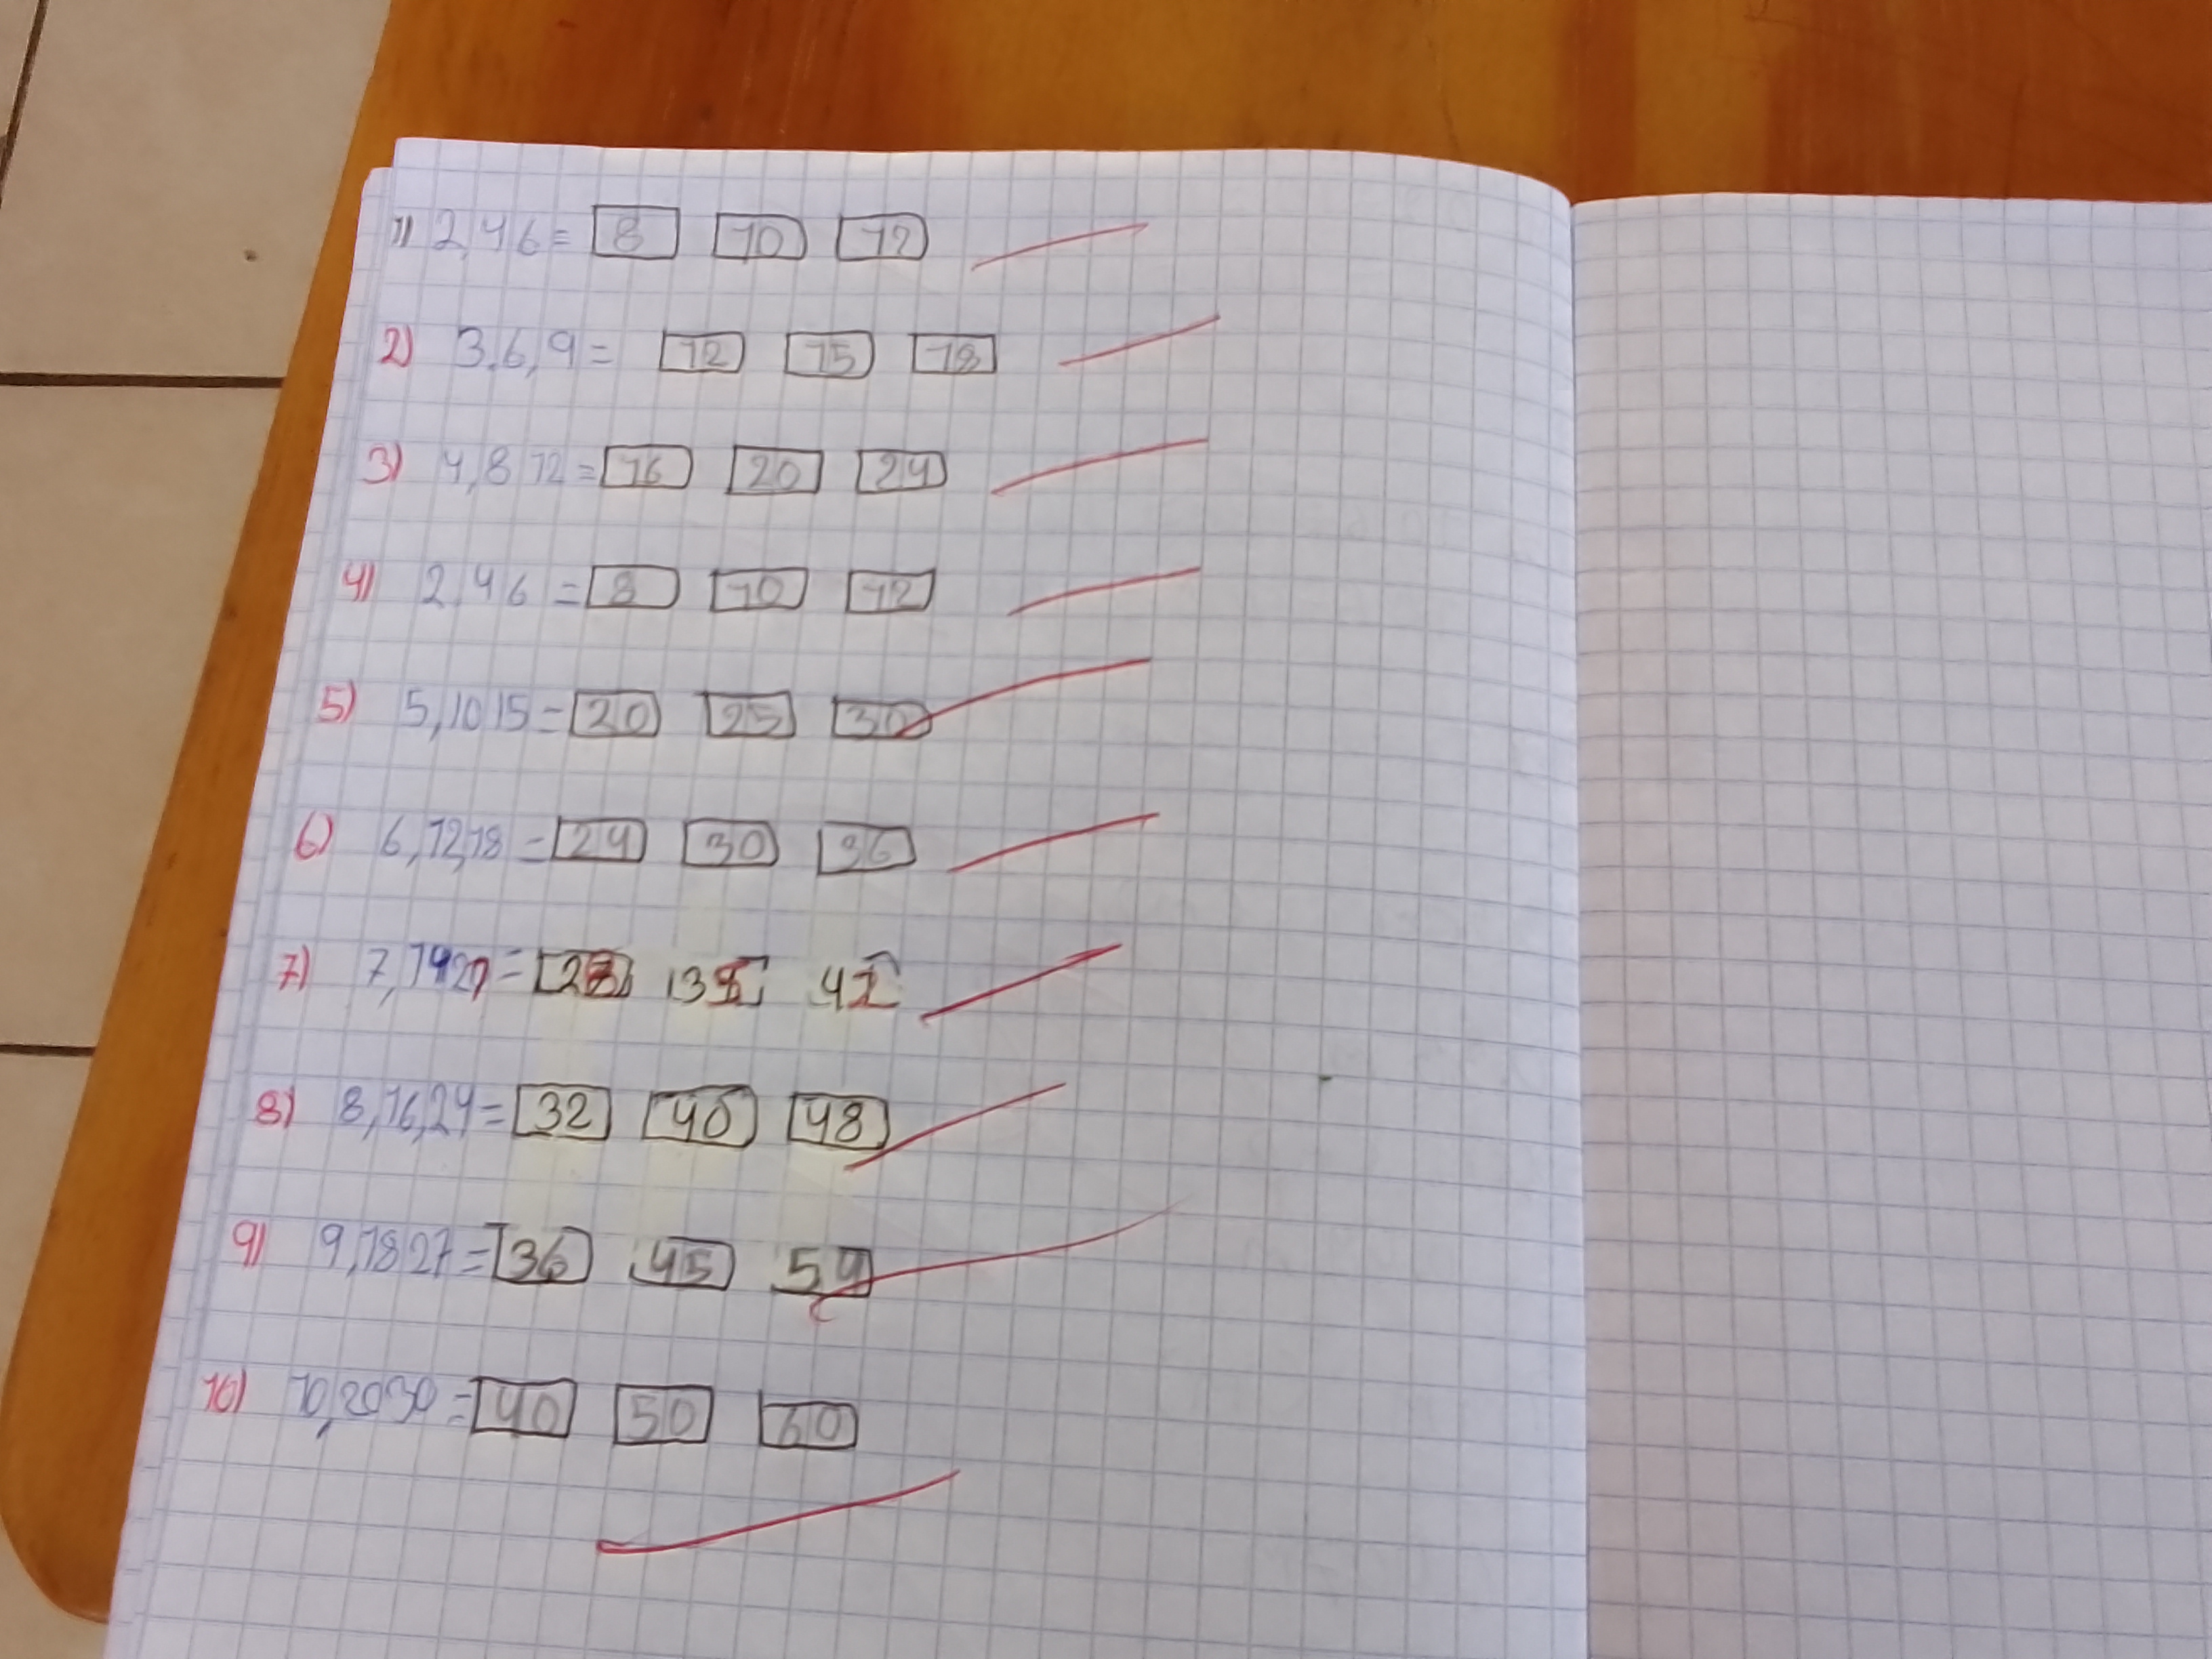 1) 2,4 6 = 8 10 12
2) 3,6,9 = 12 15 18
3) 4,8 12 = 16 20 24
4) 2,4 6 = 8 10 12
5) 5,10 15 = 20 25 30
6) 6,12,18 = 24 30 36
7) 7,14 21 = 28 35 42
8) 8,16,24 = 32 40 48
9) 9,18 27 = 36 45 54
10) 10,20 30 = 40 50 60